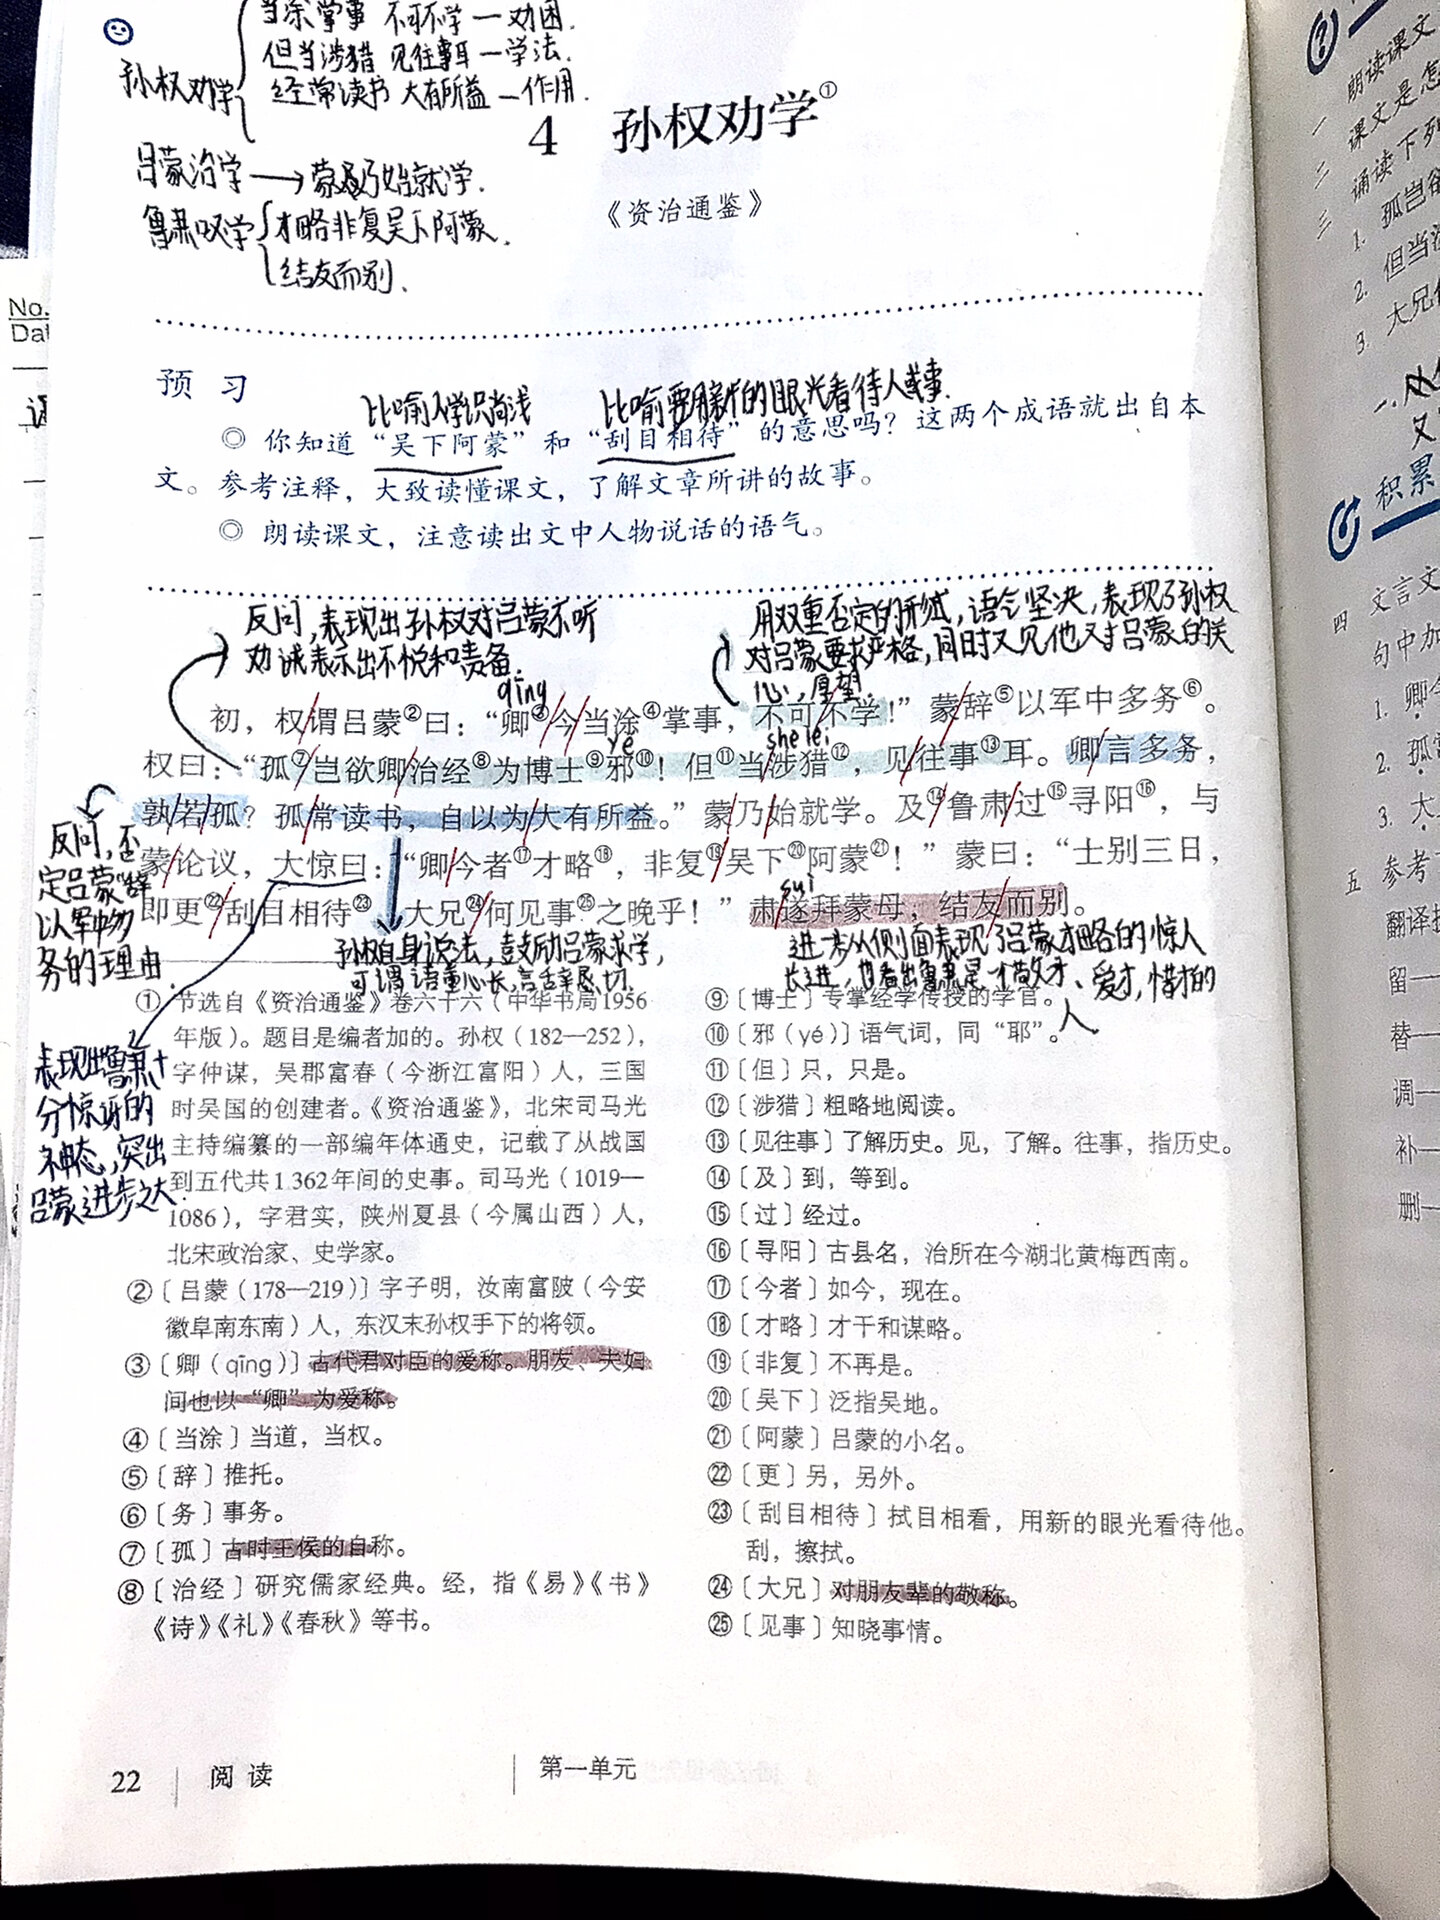 当涂掌事 不可不学 — 劝因.
孙权劝学
但当涉猎 见往事耳 — 学法.
经常读书 大有所益 — 作用.
4 孙权劝学①
吕蒙治学 → 蒙乃始就学.
鲁肃叹学
才略非复吴下阿蒙.
结友而别.
《资治通鉴》
No.
Dat
预 习
比喻人学识尚浅
比喻要用新的眼光看待人或事.
◎ 你知道“吴下阿蒙”和“刮目相待”的意思吗？这两个成语就出自本
文。参考注释，大致读懂课文，了解文章所讲的故事。
◎ 朗读课文，注意读出文中人物说话的语气。
反问,表现出孙权对吕蒙不听
劝诫表示出不悦和责备.
用双重否定的形式,语气坚决,表现了孙权
对吕蒙要求严格,同时又见他对吕蒙的关
心,厚望.
qīng
初，权谓吕蒙②曰：“卿③今当涂④掌事，不可不学！”蒙辞⑤以军中多务⑥。
yé
she lei
权曰：“孤⑦岂欲卿治经⑧为博士⑨邪⑩！但⑪当涉猎⑫，见往事⑬耳。卿言多务，
孰若孤？孤常读书，自以为大有所益。”蒙乃始就学。及⑭鲁肃过⑮寻阳⑯，与
蒙论议，大惊曰：“卿今者⑰才略⑱，非复⑲吴下⑳阿蒙㉑！”蒙曰：“士别三日，
sui
即更㉒刮目相待㉓，大兄㉔何见事㉕之晚乎！”肃遂拜蒙母，结友而别。
反问,否
定吕蒙“辞
以军中务
务的理由.
孙权自身说法,鼓励吕蒙求学,
可谓语重心长,言辞恳切.
进一步从侧面表现了吕蒙才略的惊人
长进,也看出鲁肃是一个敬才、爱才,惜才的
人
表现出鲁肃十
分惊讶的
神态,突出
吕蒙进步之大.
① 节选自《资治通鉴》卷六十六（中华书局1956
年版）。题目是编者加的。孙权（182—252），
字仲谋，吴郡富春（今浙江富阳）人，三国
时吴国的创建者。《资治通鉴》，北宋司马光
主持编纂的一部编年体通史，记载了从战国
到五代共1362年间的史事。司马光（1019—
1086），字君实，陕州夏县（今属山西）人，
北宋政治家、史学家。
② 〔吕蒙（178—219）〕字子明，汝南富陂（今安
徽阜南东南）人，东汉末孙权手下的将领。
③ 〔卿（qīng）〕古代君对臣的爱称。朋友、夫妇
间也以“卿”为爱称。
④ 〔当涂〕当道，当权。
⑤ 〔辞〕推托。
⑥ 〔务〕事务。
⑦ 〔孤〕古时王侯的自称。
⑧ 〔治经〕研究儒家经典。经，指《易》《书》
《诗》《礼》《春秋》等书。
⑨ 〔博士〕专掌经学传授的学官。
⑩ 〔邪（yé）〕语气词，同“耶”。
⑪ 〔但〕只，只是。
⑫ 〔涉猎〕粗略地阅读。
⑬ 〔见往事〕了解历史。见，了解。往事，指历史。
⑭ 〔及〕到，等到。
⑮ 〔过〕经过。
⑯ 〔寻阳〕古县名，治所在今湖北黄梅西南。
⑰ 〔今者〕如今，现在。
⑱ 〔才略〕才干和谋略。
⑲ 〔非复〕不再是。
⑳ 〔吴下〕泛指吴地。
㉑ 〔阿蒙〕吕蒙的小名。
㉒ 〔更〕另，另外。
㉓ 〔刮目相待〕拭目相看，用新的眼光看待他。
刮，擦拭。
㉔ 〔大兄〕对朋友辈的敬称。
㉕ 〔见事〕知晓事情。
22 阅读 第一单元
一 朗读课文
课文是怎
二 诵读下列
三
1. 孤岂欲
2. 但当涉
3. 大兄何
积累
四 文言文
句中加
1. 卿今
2. 孤常
3. 大
五 参考
翻译技
留—
替—
调—
补—
删—